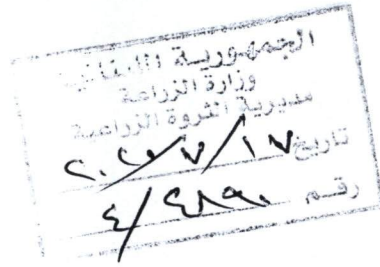 الجمهورية اللبنانية
وزارة الزراعة
مديرية الثروة الزراعية
تاريخ ٢٠٢٠/٧/١٧
رقم ٤/٤٨٩٠